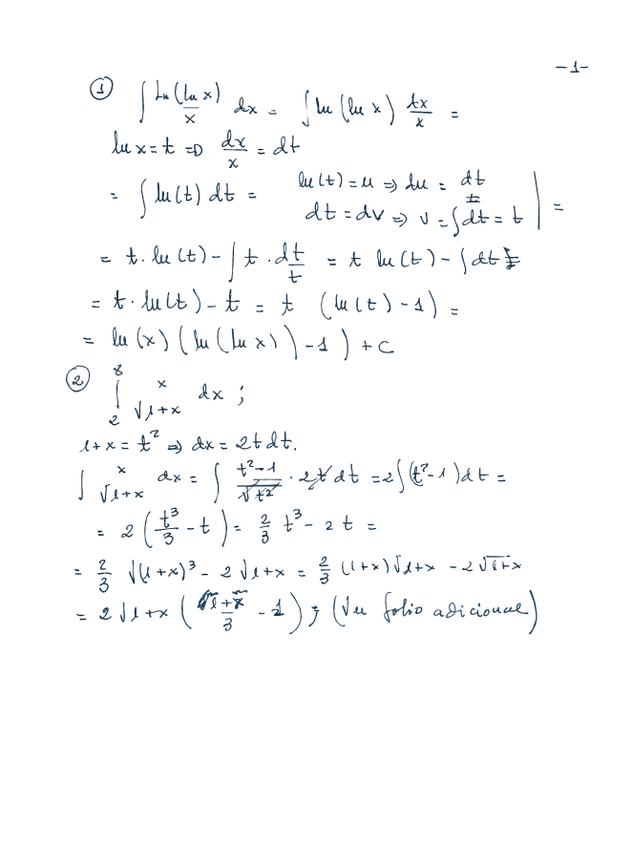 -1-
① ∫ Ln(ln x)/x dx = ∫ ln(ln x) dx/x =
ln x = t ⇒ dx/x = dt
= ∫ ln(t) dt = ln(t) = u ⇒ du = dt/t
dt = dv ⇒ v = ∫dt = t | =
= t · ln(t) - ∫ t · dt/t = t ln(t) - ∫ dt
= t · ln(t) - t = t (ln(t) - 1) =
= ln(x) (ln(ln x)) - 1) + C
② ∫₂⁸ x/√1+x dx ;
1+x = t² ⇒ dx = 2t dt.
∫ x/√1+x dx = ∫ t²-1/√t² · 2t dt = 2∫(t²-1)dt =
= 2 (t³/3 - t) = 2/3 t³ - 2t =
= 2/3 √(1+x)³ - 2√1+x = 2/3 (1+x)√1+x - 2√1+x
= 2√1+x (1+x/3 - 1) ; (Ver folio adicional)